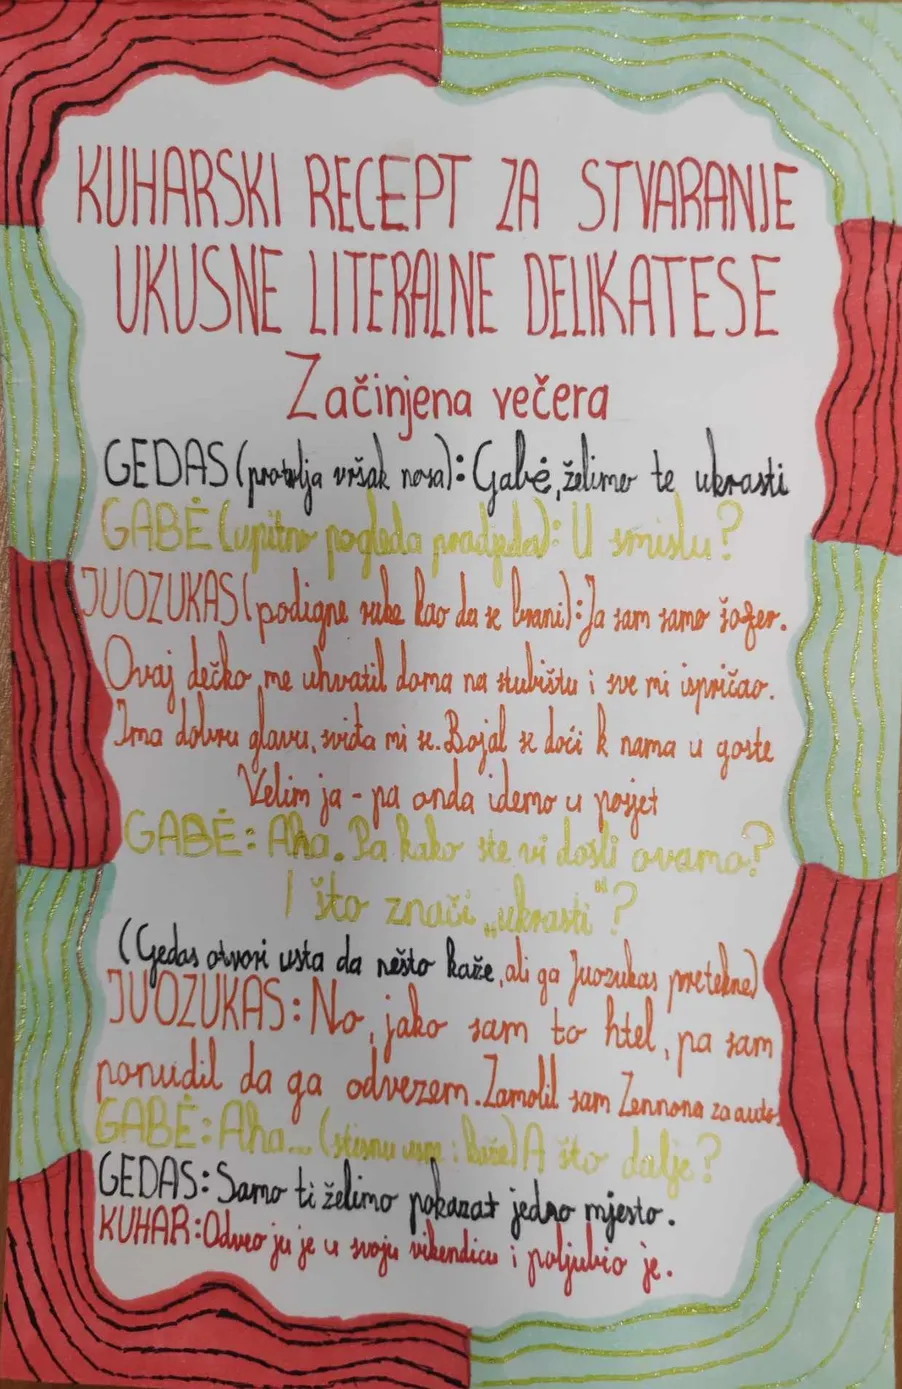 KUHARSKI RECEPT ZA STVARANJE
UKUSNE LITERALNE DELIKATESE
Začinjena večera
GEDAS (protrlja vršak nosa): Gabė, želimo te ukrasti
GABĖ (upitno pogleda pradjeda): U smislu?
JUOZUKAS (podigne ruke kao da se brani): Ja sam samo šofer.
Ovaj dečko me uhvatil doma na stubištu i sve mi ispričao.
Ima dobru glavu, sviđa mi se. Bojal se doći k nama u goste
Velim ja - pa onda idemo u posjet
GABĖ: Aha. Pa kako ste vi došli ovamo?
I što znači „ukrasti"?
(Gedas otvori usta da nešto kaže, ali ga Juozukas pretekne)
JUOZUKAS: No, jako sam to htel, pa sam
ponudil da ga odvezem. Zamolil sam Zennona za auto.
GABĖ: Aha... (stisnu usne i kaže) A što dalje?
GEDAS: Samo ti želimo pokazat jedno mjesto.
KUHAR: Odveo ju je u svoju vikendicu i poljubio je.